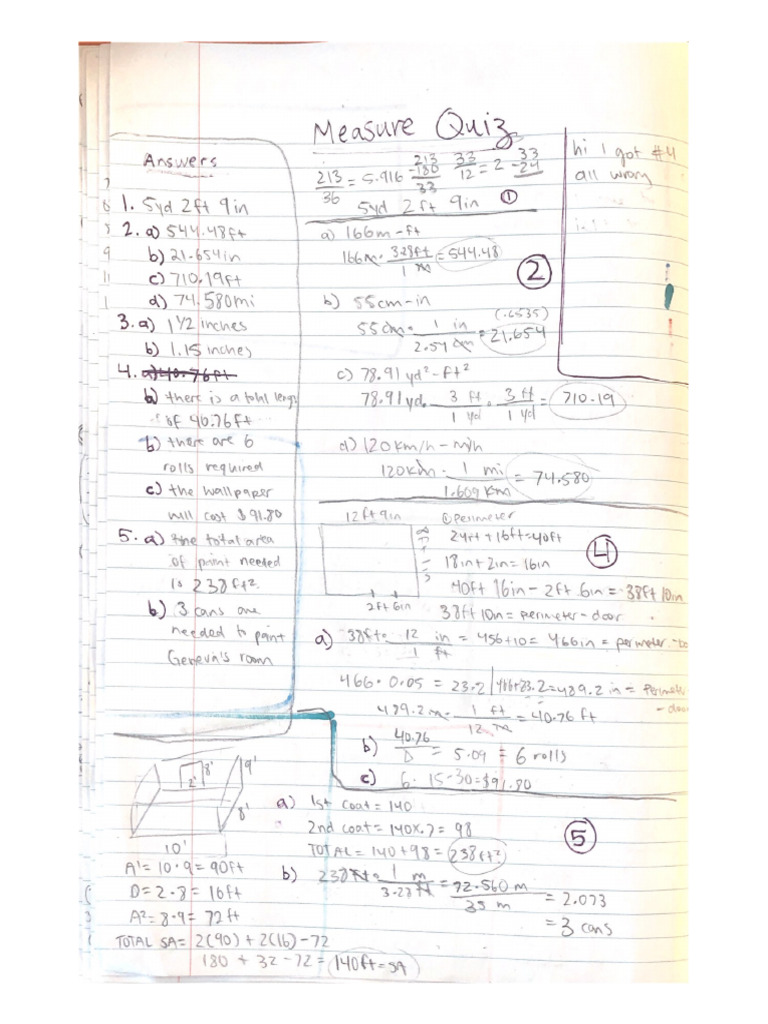 Measure Quiz
Answers
1. 5yd 2ft 9in
2. a) 544.48ft
b) 21.654in
c) 710.19ft
d) 74.580mi
3. a) 1 1/2 inches
b) 1.15 inches
4. a) 40.76ft
b) there is a total leng
of 40.76ft
b) there are 6
rolls required
c) the wallpaper
will cost $91.80
5. a) the total area
of paint needed
is 238ft².
b) 3 cans are
needed to paint
Geneva's room
213/36 = 5.916
213
-180
33
33/12 = 2
33
-24
5yd 2ft 9in ①
a) 166m-ft
166m · 3.28ft/1m = 544.48
②
b) 55cm-in
(.6535)
55cm · 1 in/2.54 cm = 21.654
c) 78.91 yd²-ft²
78.91yd · 3 ft/1 yd · 3 ft/1 yd = 710.19
d) 120km/h - mi/h
120km · 1 mi/1.609 km = 74.580
hi I got #4
all wrong
12ft 9in
2ft 6in
① perimeter
24ft + 16ft = 40ft
18in + 2in = 16in
④
40ft 16in - 2ft 6in = 38ft 10in
38ft 10in = perimeter - door
a) 38ft · 12/1 in/ft = 456+10 = 466in = perimeter
466 · 0.05 = 23.2 | 466+23.2 = 489.2 in = perimeter
- door
489.2 in · 1 ft/12 in = 40.76 ft
b) 40.76/8 = 5.09 = 6 rolls
c) 6 · 15.30 = $91.80
2' 8' 9'
8'
10'
A¹ = 10·9 = 90ft
D = 2·8 = 16ft
A² = 8·9 = 72ft
TOTAL SA = 2(90) + 2(16) - 72
180 + 32 - 72 = 140ft = SA
a) 1st coat = 140
2nd coat = 140×.7 = 98
TOTAL = 140 + 98 = 238ft²
⑤
b) 238ft · 1 m/3.28 ft = 72.560 m/35 m = 2.073
= 3 cans